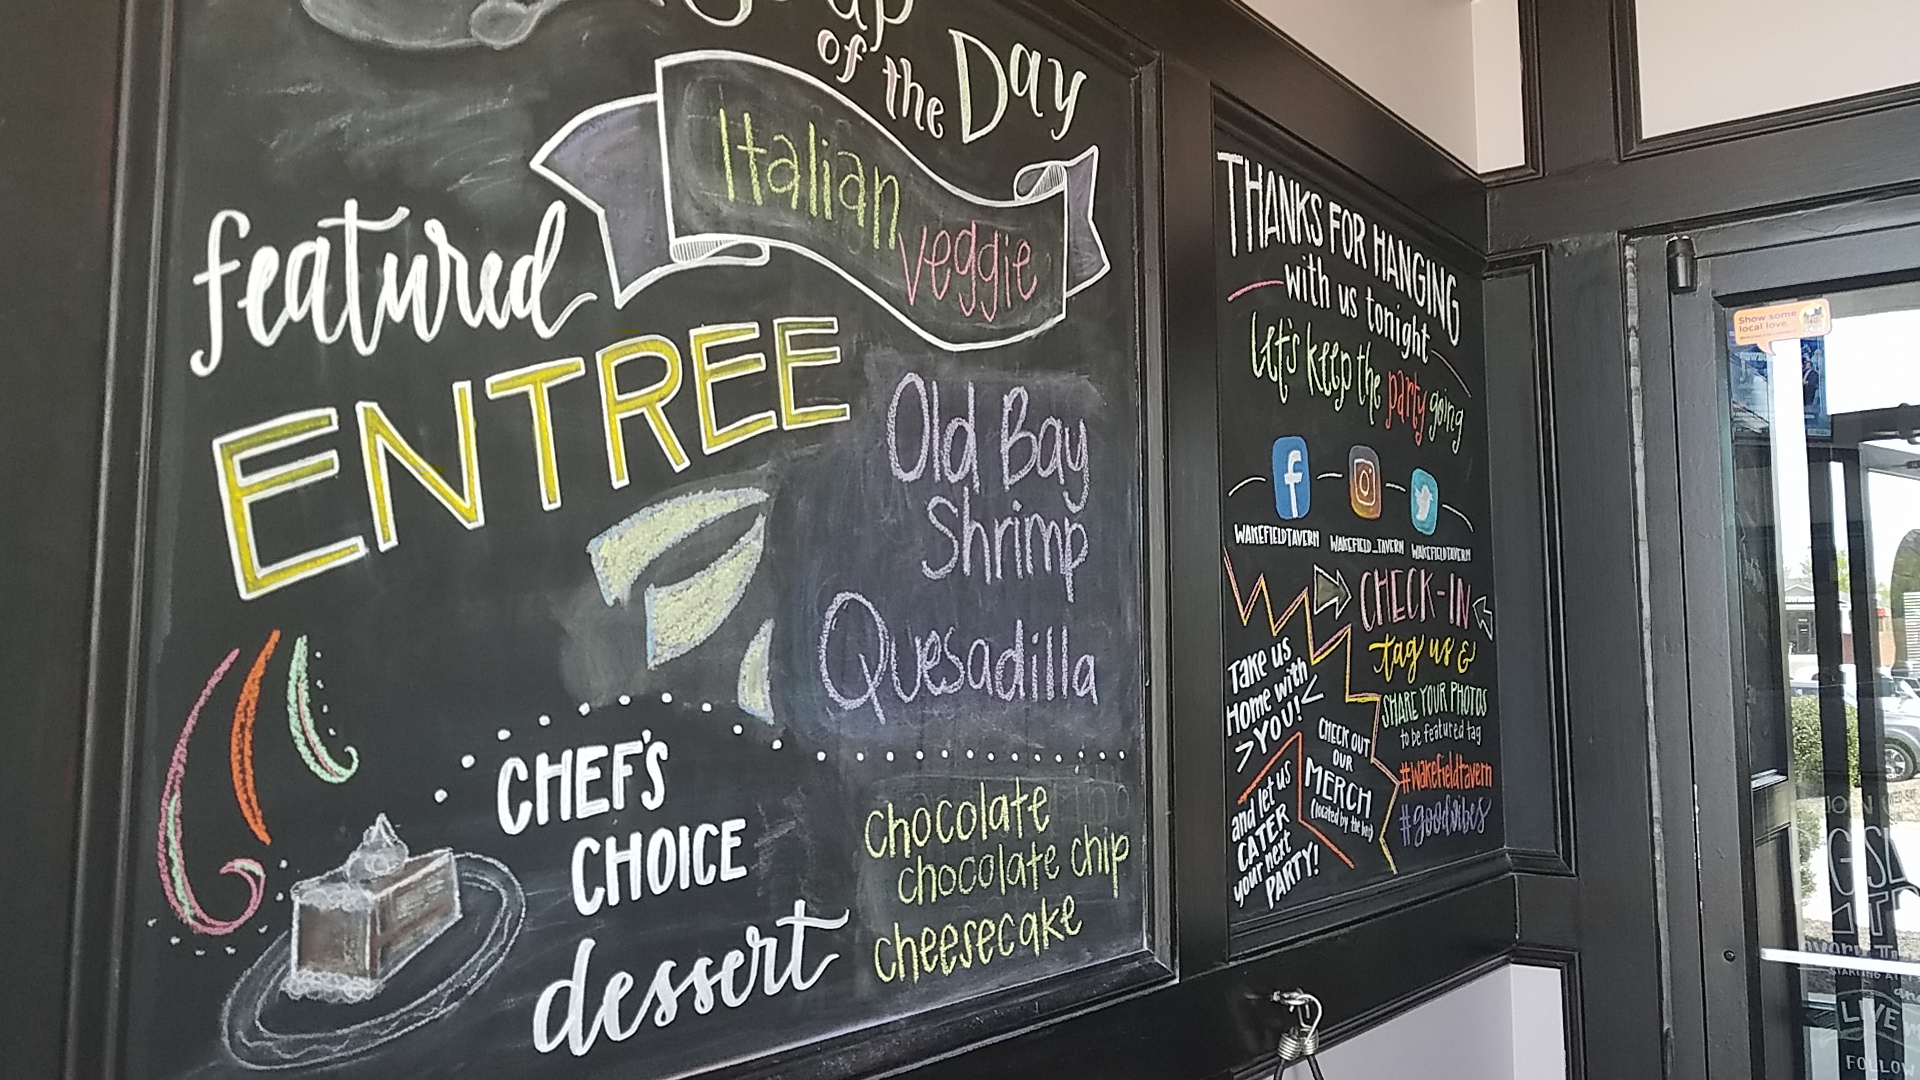 Soup
of the Day
Italian
veggie
featured
ENTREE
Old Bay
Shrimp
Quesadilla
CHEF'S
CHOICE
dessert
chocolate
chocolate chip
cheesecake
THANKS FOR HANGING
with us tonight
let's keep the party going
f
WAKEFIELDTAVERN
WAKEFIELD_TAVERN
WAKEFIELDTAVERN
CHECK-IN
tag us &
SHARE YOUR PHOTOS
to be featured tag
#wakefieldtavern
#goodvibes
Take us
Home with
>YOU!<
and let us
CATER
your next
PARTY!
CHECK OUT
OUR
MERCH
(located by the bar)
Show some
local love.
LIVE
FOLLOW